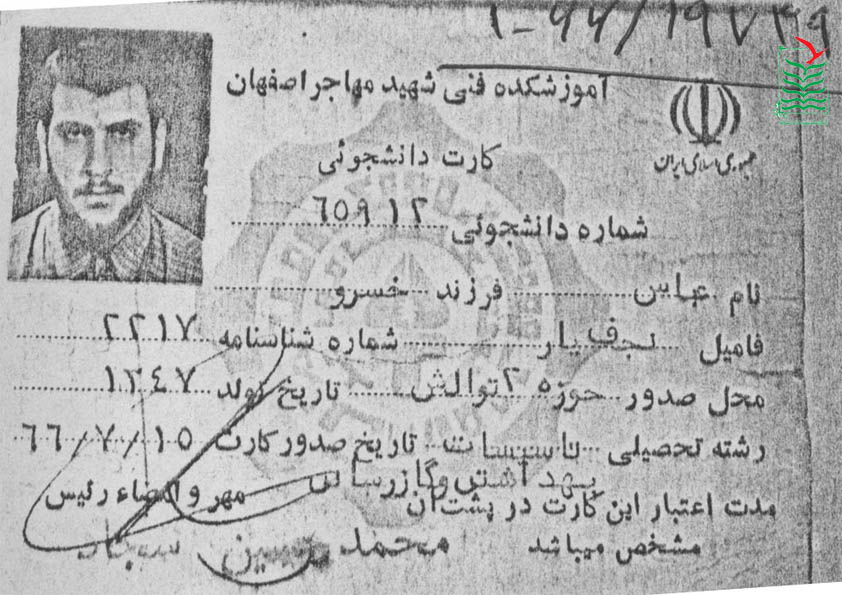 ۱-۶۶/۱۹۷۳۹
آموزشکده فنی شهید مهاجر اصفهان
جمهوری اسلامی ایران
کارت دانشجوئی
شماره دانشجوئی ۶۵۹۱۲
نام عباس فرزند خسرو
فامیل نجف یار شماره شناسنامه ۲۲۱۷
محل صدور حوزه ۲ توالش تاریخ تولد ۱۳۴۷
رشته تحصیلی تاسیسات تاریخ صدور کارت ۶۶/۷/۱۵
بهداشتی وگازرسانی
مدت اعتبار این کارت در پشت آن مهر و امضاء رئیس
مشخص میباشد محمد حسین